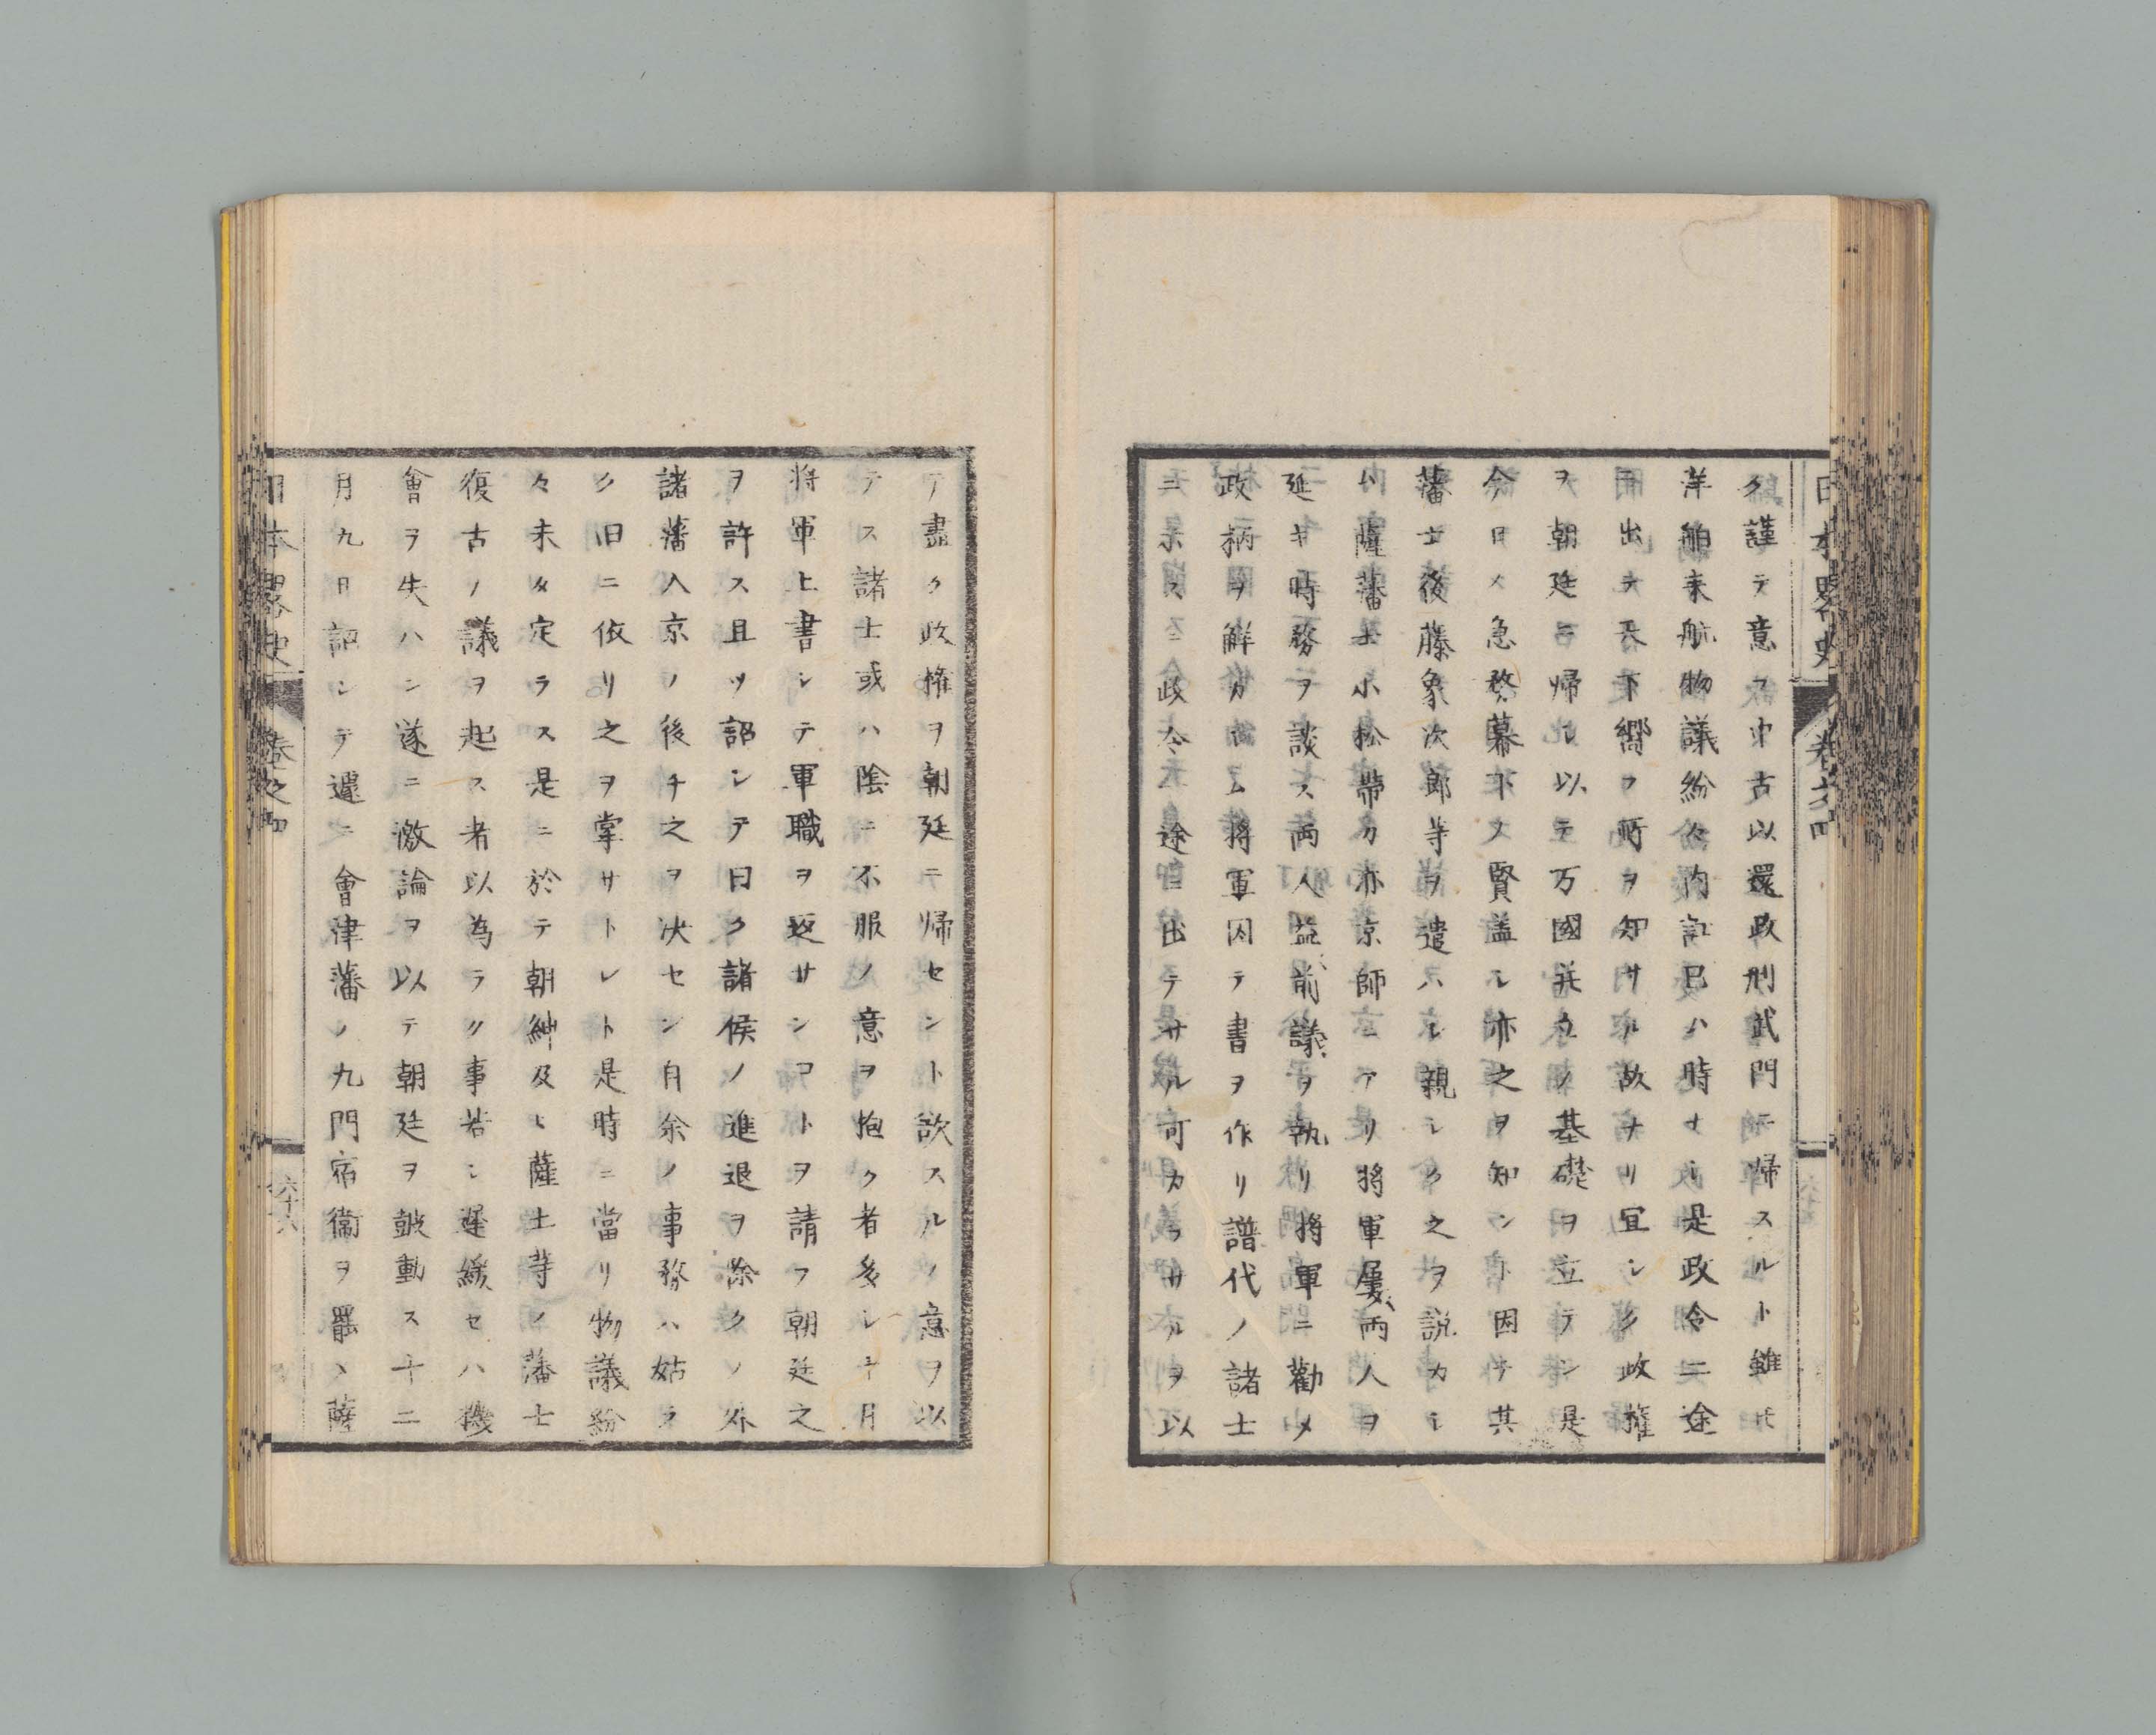 日本畧史 卷之四
ク謹テ意フ中古以還政刑武門ニ帰スルト雖𪜈
洋舶来航物議紛々内訌已ハ時ナシ是政令二途
ニ出テ天下嚮フ所ヲ知サル故ナリ冝シク政權
ヲ朝廷ニ帰シ以テ万國并立ノ基礎ヲ立テン是
今日ノ急務幕下ノ賢盖シ亦之ヲ知ント因テ其
藩士後藤象次郎等ヲ遣ハシ親シク之ヲ説カシ
ム薩藩士小松帶刀亦京師ニアリ將軍屢〻両人ヲ
延キ時務ヲ談ス両人益〻前議ヲ執リ將軍ニ勸メ
政柄ヲ解カシム將軍因テ書ヲ作リ譜代ノ諸士
ニ 政令二途ニ出テサル可カラサルヲ以
テ盡ク政権ヲ朝廷ニ帰セント欲スルノ意ヲ以
テス諸士或ハ陰ニ不服ノ意ヲ抱ク者多シ十月
將軍上書シテ軍職ヲ返サンコトヲ請フ朝廷之
ヲ許ス且ツ詔シテ曰ク諸侯ノ進退ヲ除クノ外
諸藩入京ノ後チ之ヲ决セン自余ノ事務ハ姑ラ
ク旧ニ依リ之ヲ掌サトレト是時ニ當リ物議紛
々未タ定ラス是ニ於テ朝紳及ヒ薩土等ノ藩士
復古ノ議ヲ起ス者以為ラク事若シ遅緩セハ機
會ヲ失ハン遂ニ激論ヲ以テ朝廷ヲ皷動ス十二
月九日詔シテ遽ニ會津藩ノ九門宿衞ヲ罷メ薩
日本畧史 卷之四 六十六